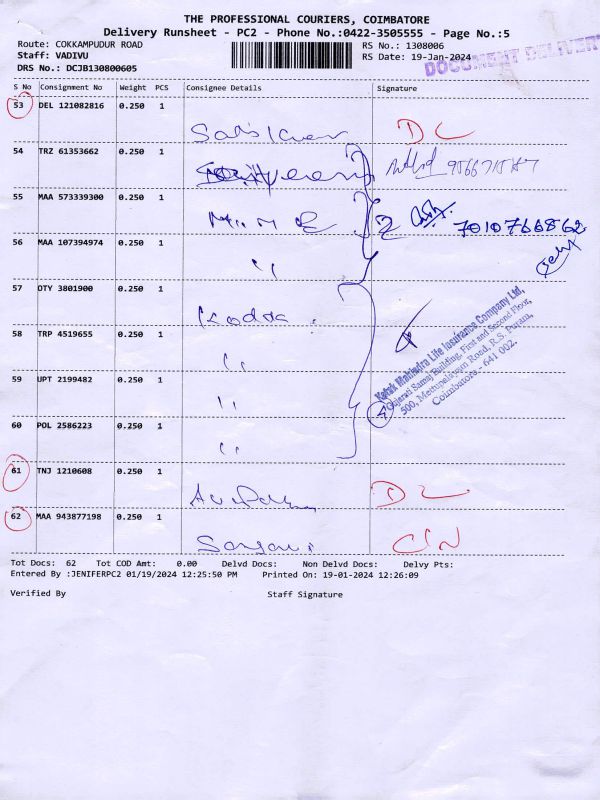 THE PROFESSIONAL COURIERS, COIMBATORE
Delivery Runsheet - PC2 - Phone No.:0422-3505555 - Page No.:5
Route: COKKAMPUDUR ROAD RS No.: 1308006
Staff: VADIVU RS Date: 19-Jan-2024
DOCUMENT DELIVERY
DRS No.: DCJB130800605
S No Consignment No Weight PCS Consignee Details Signature
53 DEL 121082816 0.250 1
DC
54 TRZ 61353662 0.250 1
55 MAA 573339300 0.250 1
2 7010766862
56 MAA 107394974 0.250 1
"
57 OTY 3801900 0.250 1
58 TRP 4519655 0.250 1
"
Kotak Mahindra Life Insurance Company Ltd,
Gujarati Samaj Building, First and Second Floor,
500, Mettupalayam Road, R.S. Puram,
Coimbatore - 641 002.
59 UPT 2199482 0.250 1
"
4
60 POL 2586223 0.250 1
"
61 TNJ 1210608 0.250 1
DC
62 MAA 943877198 0.250 1
Tot Docs: 62 Tot COD Amt: 0.00 Delvd Docs: Non Delvd Docs: Delvy Pts:
Entered By :JENIFERPC2 01/19/2024 12:25:50 PM Printed On: 19-01-2024 12:26:09
Verified By Staff Signature